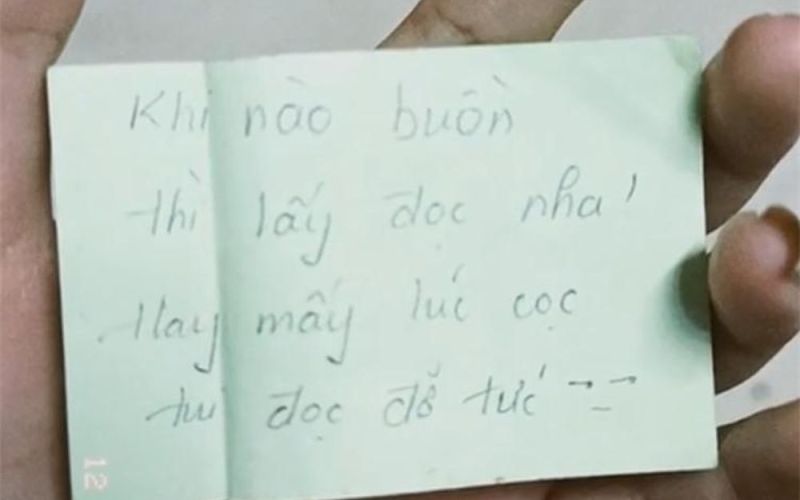 Khi nào buồn
thì lấy đọc nha!
Hay mấy lúc cọc
tui đọc đỡ tức -_-
12